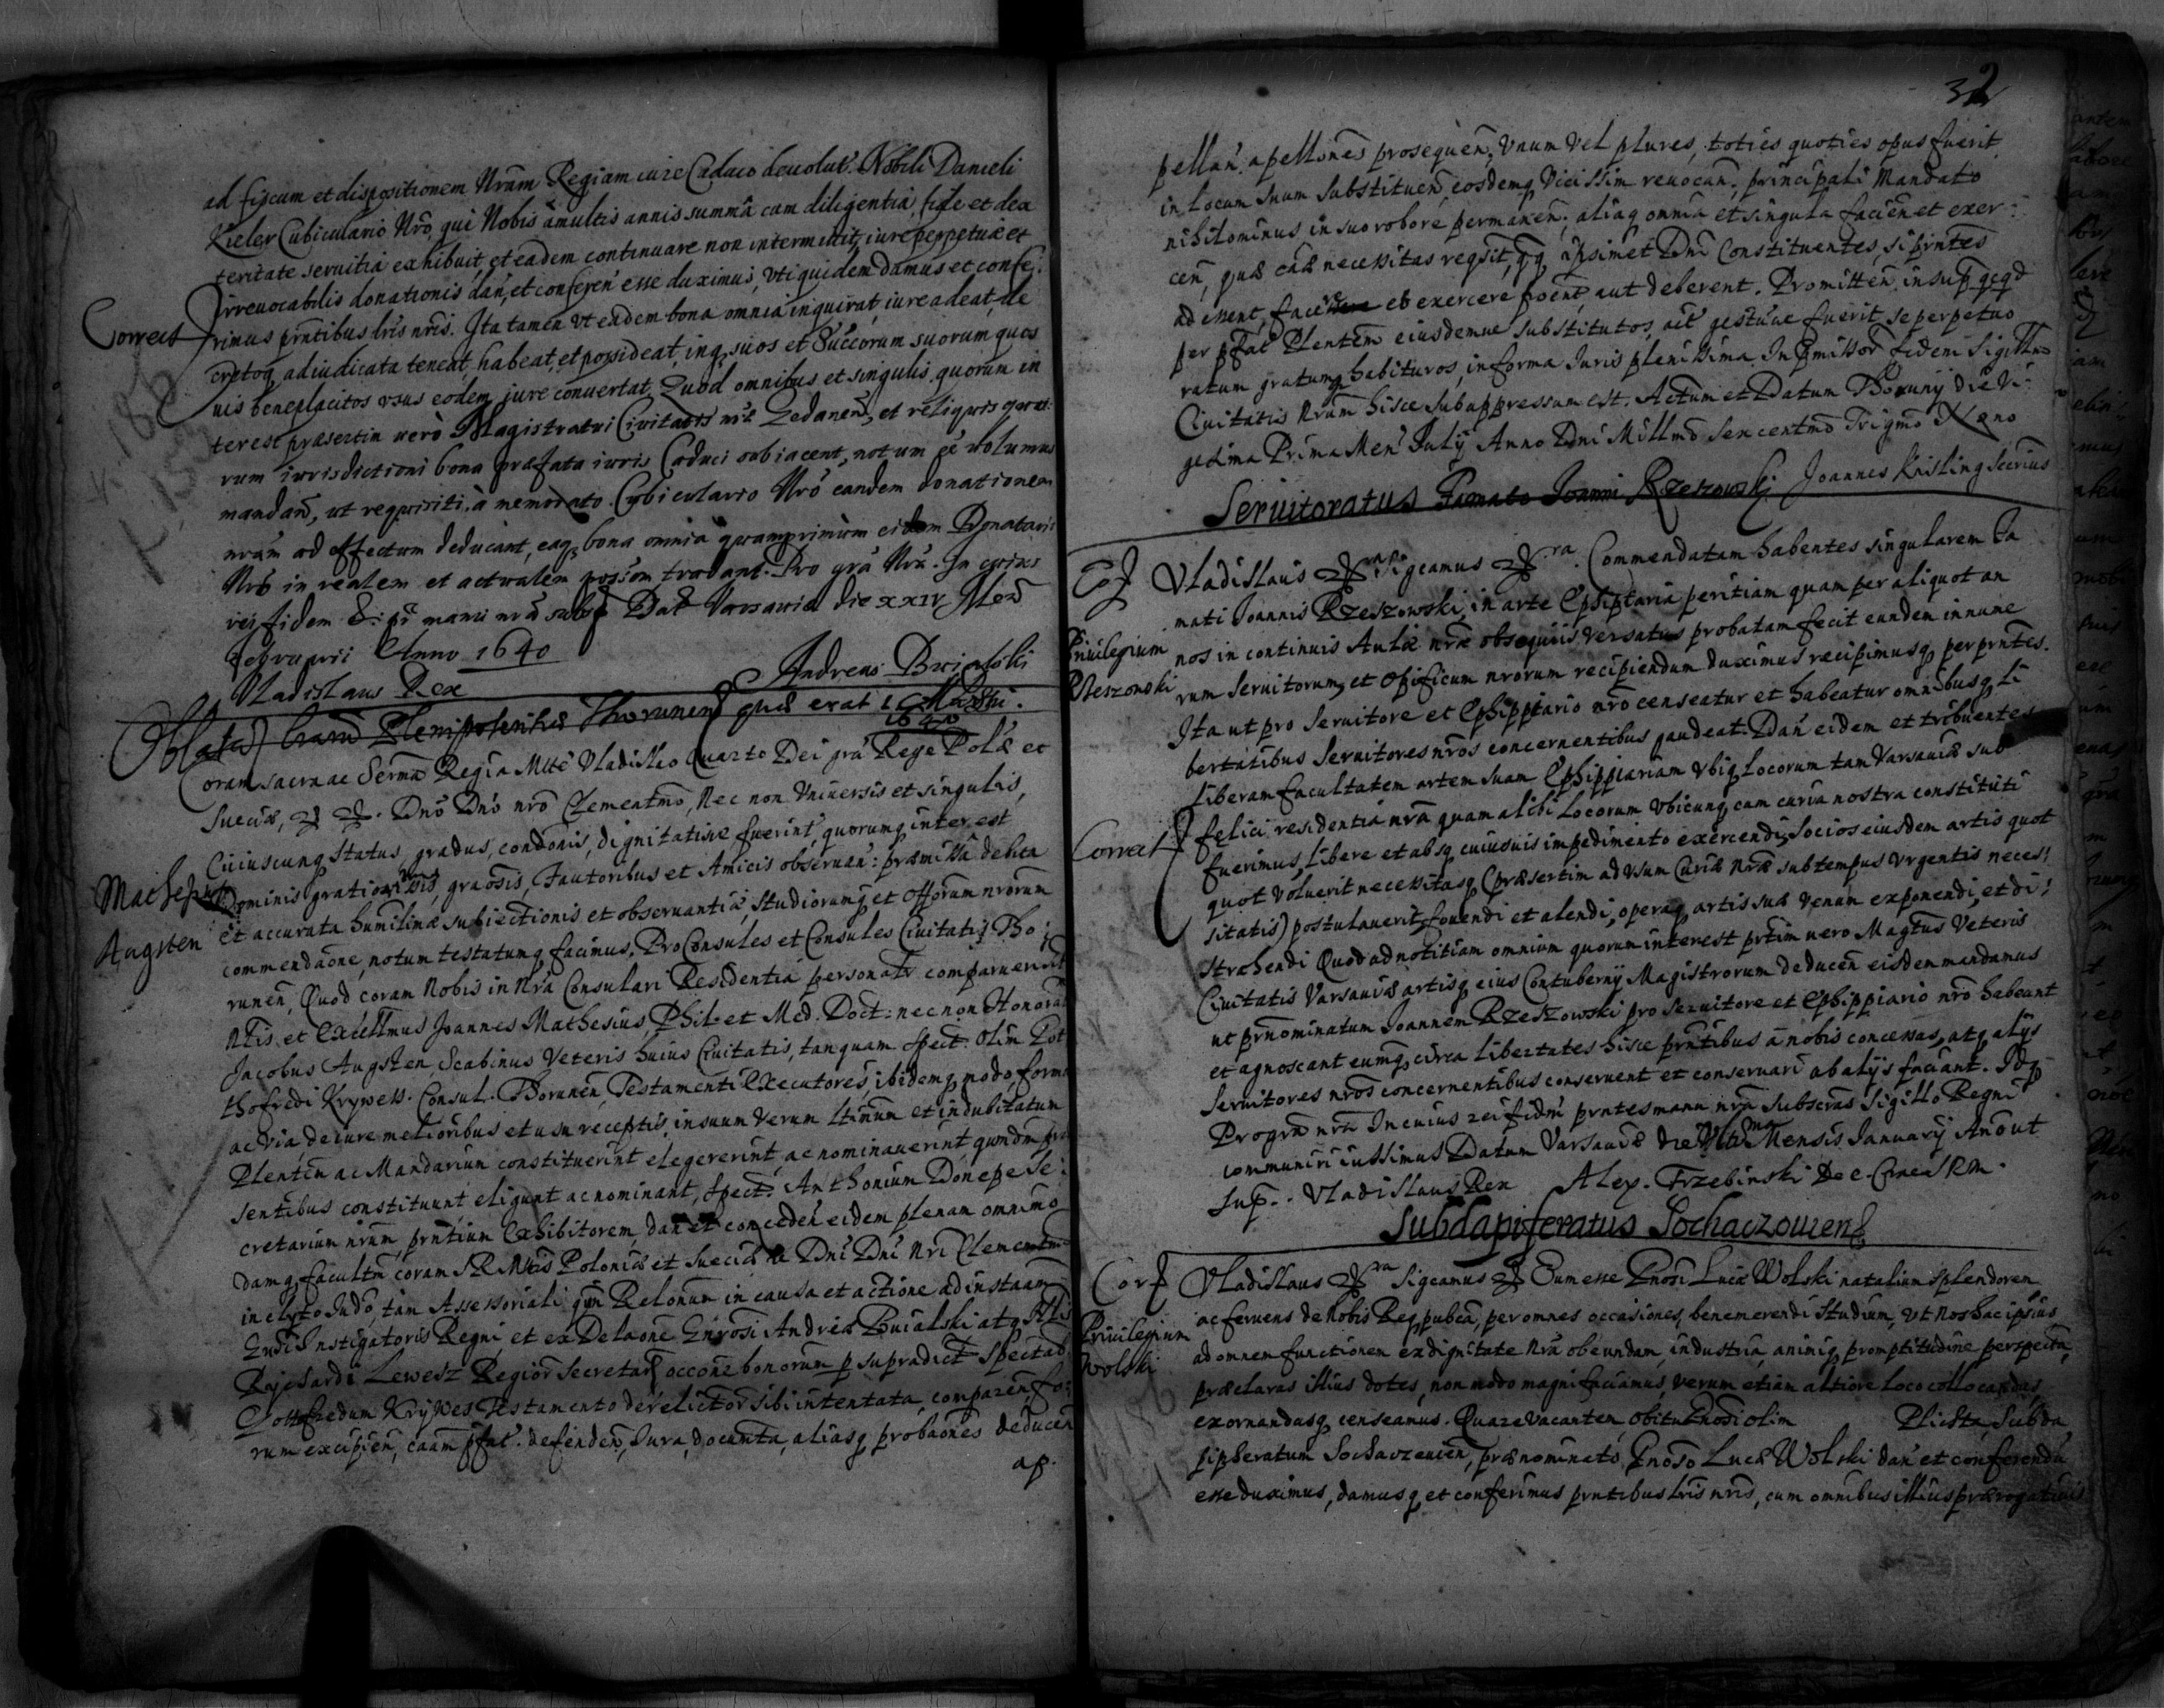 ad fiscum et dispositionem Nram Regiam iure Caduco devolut. Nobili Danieli
Kieler Cubiculario Nro, qui Nobis a multis annis summa cum diligentia, fide et dex
teritate servitia exhibuit, et eadem continuare non intermittit, iure perpetuæ et
irrevocabilis donationis dan, et conferen esse duximus, uti quidem damus et confe:
Correct
rimus prntibus lris nris. Ita tamen ut eadem bona omnia inquirat, iure adeat, de
cretoq adiudicata teneat, habeat, et possideat inq suos et Succorum suorum quos
vis beneplacitos usus eodem jure convertat. Quod omnibus et singulis quorum in
terest præsertim uerò Magistratui Civitatis nræ Gedanen, et reliquis quo
rum iurisdictioni bona præfata iuris Caduci subiacent, notum ee volumus
mandan, ut requisiti, à memorato Cubiculario Nro eandem donationem
nram ad effectum deducant, eaq bona omnia quamprimum eidem Donatario
Nro in realem et actualem possom tradant. Pro gra Nra. In cuius
rei fidem manu nra subs Dat Varsaviæ die XXIV Men
Februarii Anno 1640
Vladislaus Rex
Oblata Lrarum Plenipotentiæ Thorunen quæ erat
1640
Coram sacra ac Serma Regia Mtte Vladislao Quarto Dei gra Rege Polæ et
Sueciæ, Dno Dno nro Clementmo, Nec non Universis et singulis,
Cuiuscunq status, gradus, condonis, dignitatisve fuerint, quorumq interest
Mathesius
Dominis gratiosissis, graosis, Fautoribus et Amicis observan: præmissa debita
et accurata humilima subiectionis et observantiæ, Studiorumq et Offorum nrorum
Augsten
commendaone, notum testatumq facimus, Pro Consules et Consules Civitatis Tho
runen, Quod coram Nobis in Nra Consulari Residentia personatr comparuerint
Ntis et Excellmus Joannes Mathesius, Phil. et Med. Doct: nec non Honorat
Jacobus Augsten Scabinus Veteris huius Civitatis, tanquam Spect. Olim Got
thofredi Krywess. Consul. Thorunen, Testamenti Executores, ibidemq modo, forma
ac via, de iure melioribus et usu receptis, in suum verum ltimum et indubitatum
Plentem ac Mandarium constituerint elegererint, ac nominaverint, quondm pr
sentibus constituunt eligunt ac nominant, Spect. Anthonium Donepe Se:
cretarium nrum, prntium Exhibitorem, dan et conceden eidem plenam omnimo
damq facultm coram S R Mtis Poloniæ et Sueciæ Dni Dni Nri Clementmi
inclyto Judo, tam Assessoriali qm Relonum in causa et actione ad instaam
Gnosi Instigatoris Regni, et ex Delaone Gnrosi Andreæ Buialski atq
Rejchardi Lewesz Regior Secretar, occone bonorum p supradict Spectab
Gottofredum Krijwes Testamento derelictor sibi intentata, comparen, fo:
rum excipien, caam pfat. defenden, Iura, documta, aliasq probaones deducen
ap.
32
pellan. apellones prosequen. Unum vel plures, toties quoties opus fuerit,
in locum suum substituen, eosdemq vicissim revocan, principali Mandato
nihilominus in suo robore permanen; aliaq omnia et singula facien et exer:
cen, quæ caæ necessitas reqsit, qq ipsimet Dni Constituentes, si prntes
adessent, facere et exercere poent, aut deberent. Promitten insup qcqd
per pfat Plentem eiusdemue substitutos, act gestuue fuerit, se perpetuo
ratum gratumq habituros, in forma Iuris plenissima. In pmissor fidem Sigillum
Civitatis Nrum hisce subappressum est. Actum et Datum Thorunij die Vi:
gesima Prima Men Julij Anno Dni Millmo Sexcentmo Trigmo Nono
Joannes Krisling Secrius
Servitoratus Famato Ioanni Rzeszowski
Cor
Vladislaus Sigcamus Commendatam habentes singularem Fa
mati Joannis Rzeszowski, in arte Ephiptaria peritiam quam per aliquot an
Privilegium
nos in continuis Aulæ nræ obsequiis versatus probatam fecit eundem in nume
Rzeszowski
rum servitorum, et Opificum nrorum recipiendum duximus recipimusq per prntes.
Ita ut pro Servitore et Ephippiario nro censeatur et habeatur omnibusq li
bertatibus Servitores nros concernentibus gaudeat. Dan eidem et tribuentes
liberam facultatem artem suam Ephippiariam ubiq locorum tam Varsaviæ sub
felici residentia nra quam alibi locorum ubicunq cum curia nostra constituti
Correct
fuerimus, libere et absq cuiusuis impedimento exercendi, Socios eiusdem artis quot
quot voluerit necessitasq (præsertim ad usum Curiæ nræ sub tempus urgentis neces:
sitatis) postulauerit, fovendi et alendi, operaq artis suæ venum exponendi, et di:
strahendi Quod ad notitiam omnium quorum interest prtim uero Magtus Veteris
Civitatis Varsaviæ artisq eius Contubernij Magistrorum deducen eisdem mandamus
ut prnominatum Joannem Rzeszowski pro Servitore et Ephippiario nro habeant
et agnoscant eumq circa libertates hisce prntibus a nobis concessas, atq alijs
Servitores nros concernentibus conservent et conservari ab alijs faciant. Idq
Pro gra nra In cuius rei fidm prntes manu nra subscras Sigillo Regni
communiri iussimus Datum Varsaviæ die Mensis Ianuarij Ano ut
sup. Vladislaus Rex Alex. Trzebinski
Subdapiferatus Sochaczovien
Cor
Vladislaus Sigcamus Cum esse Gnosi Lucæ Wolski natalium splendorem
ac fervens de Nobis Reqpubca, per omnes occasiones, benemerendi studium, ut nos hac ipsius
Privilegium
ad omnem functionem ex dignitate Nra obeundam, industria, animiq promptitudine perspecta,
Wolski
præclaras illius dotes, non modo magnifaciamus, verum etiam altiore loco collocandas
exornandasq censeamus. Quare vacantem obitu Gnosi olim Plichta, Subda
piferatum Sochaczevien, prænominato Gnoso Lucæ Wolski dan et conferendu
esse duximus, damusq et conferimus prntibus lris nris, cum omnibus illius prærogativis